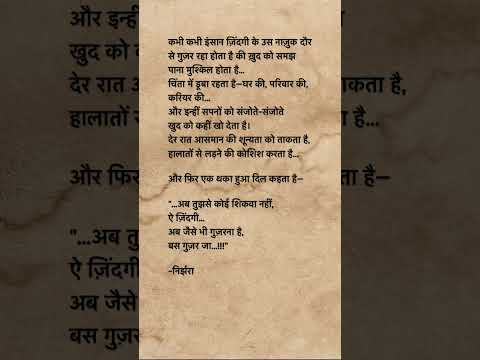 कभी कभी इंसान ज़िंदगी के उस नाज़ुक दौर
से गुज़र रहा होता है की ख़ुद को समझ
पाना मुश्किल होता है...
चिंता में डूबा रहता है—घर की, परिवार की,
करियर की...
और इन्हीं सपनों को संजोते-संजोते
खुद को कहीं खो देता है।
देर रात आसमान की शून्यता को ताकता है,
हालातों से लड़ने की कोशिश करता है...
और फिर एक थका हुआ दिल कहता है—
"...अब तुझसे कोई शिकवा नहीं,
ऐ ज़िंदगी...
अब जैसे भी गुज़रना है,
बस गुज़र जा...!!!"
-निर्झरा